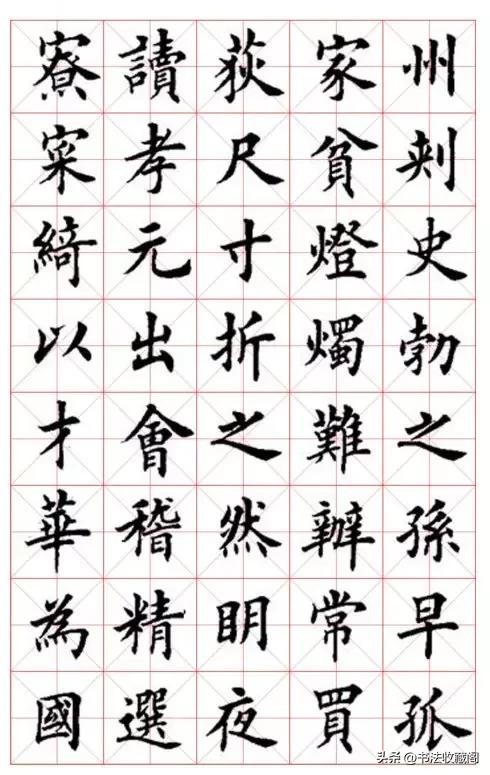 州刾史勃之孫早孤
家貧燈燭難辦常買
荻尺寸折之然明夜
讀孝元出會稽精選
寮寀綺以才華為國
头条 @书法收藏阁